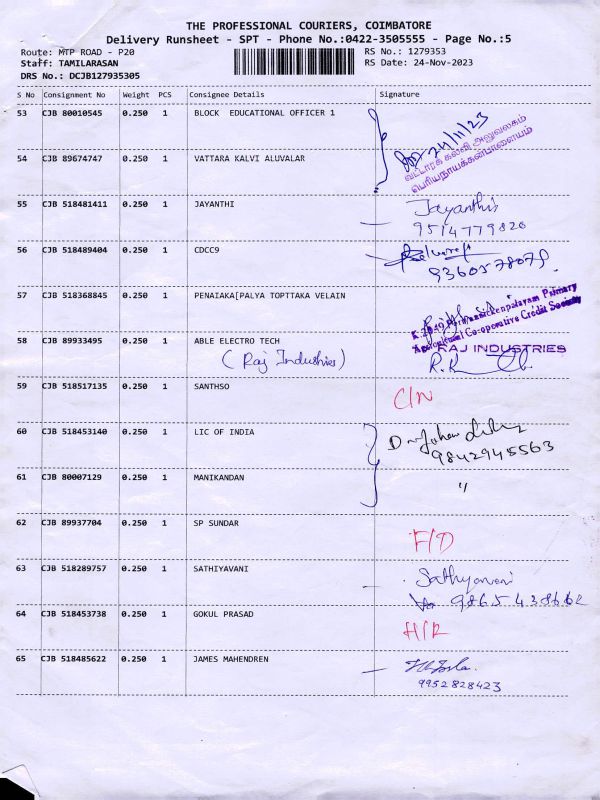 THE PROFESSIONAL COURIERS, COIMBATORE
Delivery Runsheet - SPT - Phone No.:0422-3505555 - Page No.:5
Route: MTP ROAD - P20 RS No.: 1279353
Staff: TAMILARASAN RS Date: 24-Nov-2023
DRS No.: DCJB127935305
S No Consignment No Weight PCS Consignee Details Signature
53 CJB 80010545 0.250 1 BLOCK EDUCATIONAL OFFICER 1
24/11/23
வட்டாரக் கல்வி அலுவலகம்
பெரியநாயக்கன்பாளையம்
54 CJB 89674747 0.250 1 VATTARA KALVI ALUVALAR
55 CJB 518481411 0.250 1 JAYANTHI Jayanthi
9514779820
56 CJB 518489404 0.250 1 CDCC9
9360578079
57 CJB 518368845 0.250 1 PENAIAKA[PALYA TOPTTAKA VELAIN
Primary
Agricultural Co-operative Credit Society
58 CJB 89933495 0.250 1 ABLE ELECTRO TECH RAJ INDUSTRIES
(Raj Industries)
59 CJB 518517135 0.250 1 SANTHSO C/N
60 CJB 518453140 0.250 1 LIC OF INDIA
9842945563
61 CJB 80007129 0.250 1 MANIKANDAN "
62 CJB 89937704 0.250 1 SP SUNDAR F/D
63 CJB 518289757 0.250 1 SATHIYAVANI Sathyavani
9865438662
64 CJB 518453738 0.250 1 GOKUL PRASAD H/R
65 CJB 518485622 0.250 1 JAMES MAHENDREN
9952828423